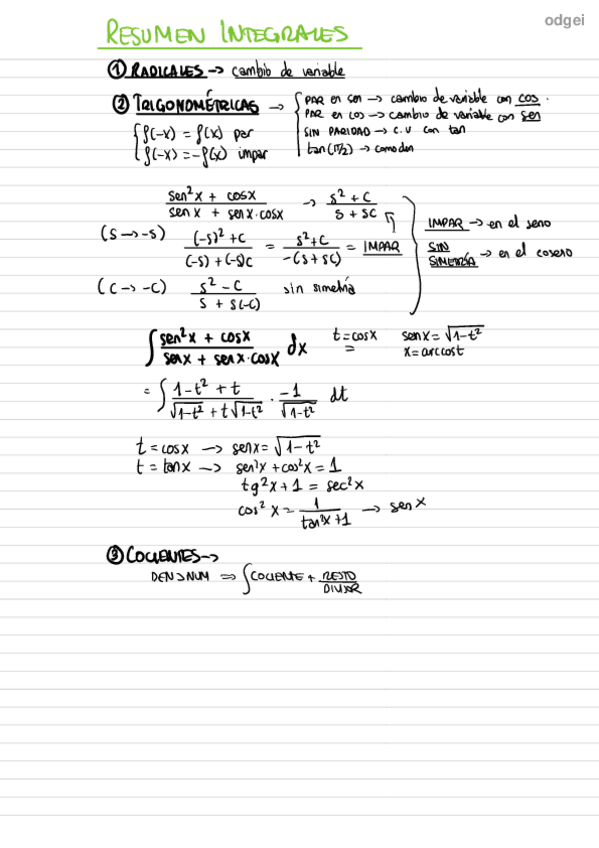 odgei
RESUMEN INTEGRALES
① RADICALES → cambio de variable
② TRIGONOMÉTRICAS →
PAR en sen → cambio de variable con cos.
PAR en cos → cambio de variable con sen
SIN PARIDAD → C.V con tan
tan(π/2) → comodin
{ f(-x) = f(x) par
f(-x) = -f(x) impar
(sen²x + cosx)/(senx + senx·cosx) → (s² + c)/(s + sc)
(s → -s) ((-s)² + c)/((-s) + (-s)c) = (s² + c)/(-(s + sc)) = IMPAR
(c → -c) (s² - c)/(s + s(-c)) sin simetría
IMPAR → en el seno
SIN SIMETRÍA → en el coseno
∫ (sen²x + cosx)/(senx + senx·cosx) dx t = cosx senx = √(1-t²)
x = arccost
= ∫ (1-t² + t)/(√(1-t²) + t√(1-t²)) · (-1)/(√(1-t²)) dt
t = cosx → senx = √(1-t²)
t = tanx → sen²x + cos²x = 1
tg²x + 1 = sec²x
cos²x = 1/(tan²x + 1) → senx
③ COCIENTES →
DEN > NUM ⇒ ∫ COCIENTE + RESTO/DIVISOR